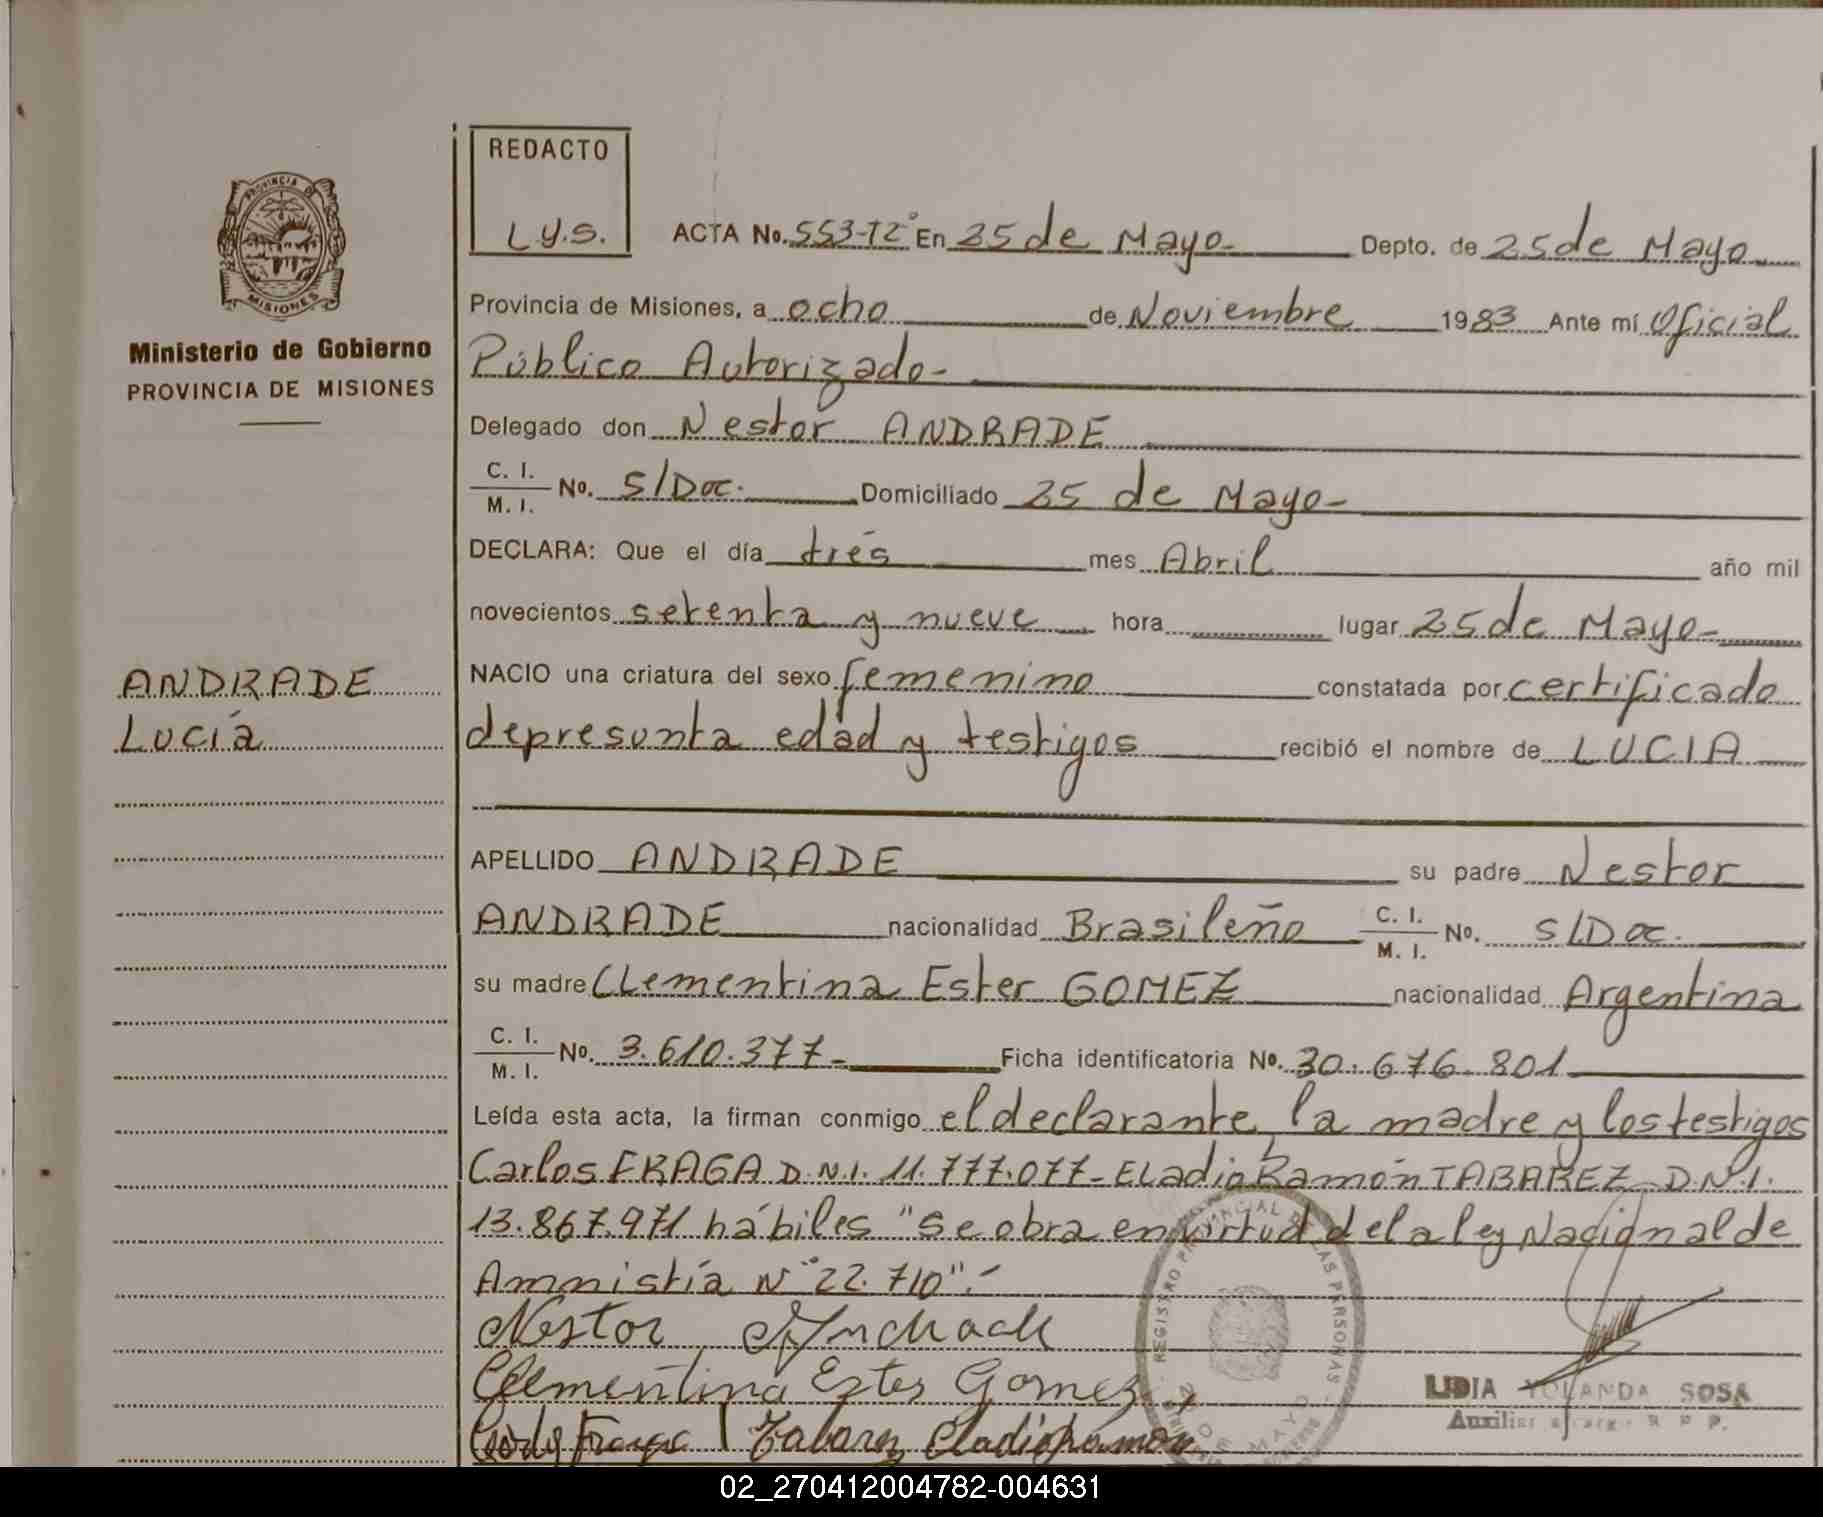 REDACTO
L.Y.S.
PROVINCIA DE
MISIONES
Ministerio de Gobierno
PROVINCIA DE MISIONES
ANDRADE
Lucía
ACTA No. 553-T2° En 25 de Mayo- Depto. de 25 de Mayo-
Provincia de Misiones, a ocho de Noviembre 1983 Ante mí Oficial
Público Autorizado-
Delegado don Nestor ANDRADE
C. I.
M. I. No. S/Doc. Domiciliado 25 de Mayo-
DECLARA: Que el día trés mes Abril año mil
novecientos setenta y nueve hora lugar 25 de Mayo-
NACIO una criatura del sexo femenino constatada por certificado
de presunta edad y testigos recibió el nombre de LUCIA
APELLIDO ANDRADE su padre Nestor
ANDRADE nacionalidad Brasileño C. I. M. I. No. S/Doc.
su madre Clementina Ester GOMEZ nacionalidad Argentina
C. I.
M. I. No. 3.610.377- Ficha identificatoria No. 30.676.801
Leída esta acta, la firman conmigo el declarante, la madre y los testigos
Carlos FRAGA D.N.I. 11.777.077- Eladio Ramón TABAREZ D.N.I.
13.867.971 hábiles "Se obra en virtud de la ley Nacional de
Amnistía N° 22.710".-
Nestor Andrade
Clementina Ester Gomez
Tabarez Eladio Ramón
REGISTRO PROVINCIAL DE LAS PERSONAS
LIDIA YOLANDA SOSA
Auxiliar
02_270412004782-004631